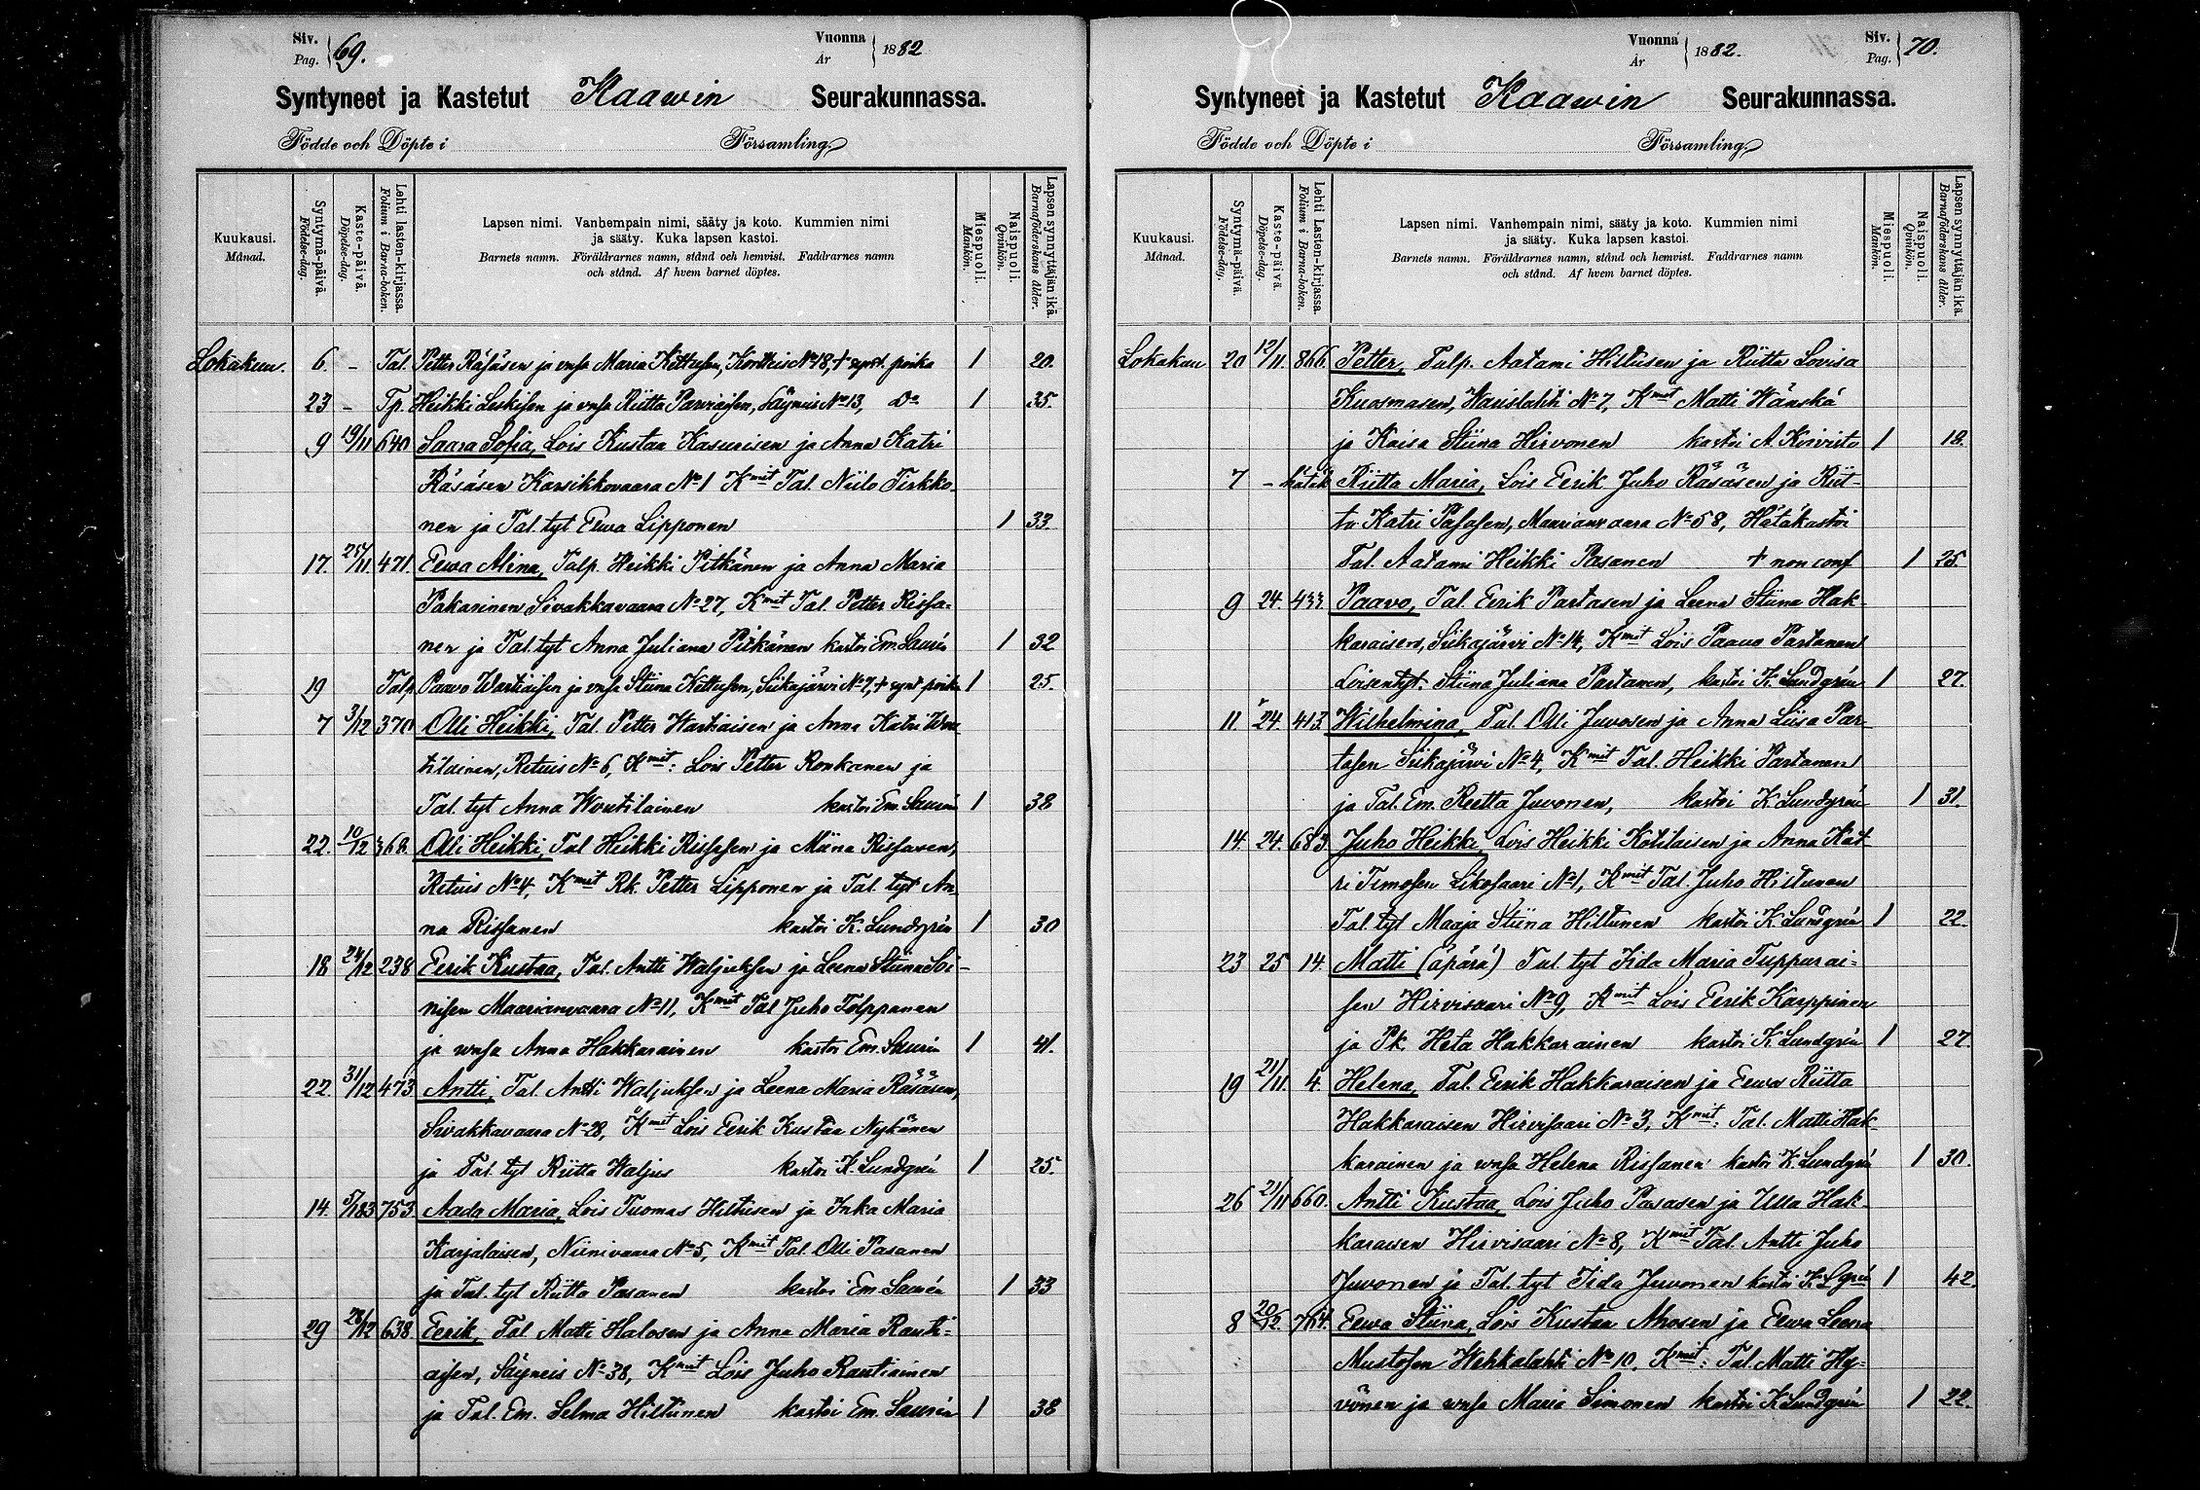 Siv. Pag. 69. Vuonna År 1882
Syntyneet ja Kastetut Kaawin Seurakunnassa.
Födde och Döpte i Församling.
Kuukausi. Månad.
Syntymä-päivä. Födelse-dag.
Kaste-päivä. Döpelse-dag.
Lehti lasten-kirjassa. Folium i Barna-boken.
Lapsen nimi. Vanhempain nimi, sääty ja koto. Kummien nimi
ja sääty. Kuka lapsen kastoi.
Barnets namn. Föräldrarnes namn, stånd och hemvist. Faddrarnes namn
och stånd. Af hvem barnet döptes.
Miespuoli. Mankön.
Naispuoli. Qvinkön.
Lapsen synnyttäjän ikä. Barnaföderskans ålder.
Lokakuu. 6. - Tal. Petter Räsäsen ja vmsa Maria Kettusen, Kortteis No 18, + synt poika 1 20.
23 - Tp. Heikki Leskisen ja vmsa Riitta Parviaisen, Säyneis No 13, Do 1 35.
9 19/11 640 Saara Sofia, Lois Kustaa Kasurisen ja Anna Katri
Räsäsen Karsikkovaara No 1 Kmit Tal. Niilo Tirkko-
nen ja Tal. tyt Eewa Lipponen 1 33.
17. 25/11. 471. Eewa Alina, Talp. Heikki Pitkänen ja Anna Maria
Pakarinen Sivakkavaara No 27, Kmit Tal. Petter Rissa-
nen ja Tal. tyt Anna Juliana Pitkänen kastoi Em. Saurén 1 32
19 Talp Paavo Wartiaisen ja vmsa Stiina Kettusen, Siikajärvi No 7, + synt poika 1 25.
7 3/12 370 Olli Heikki, Tal. Petter Wartiaisen ja Anna Katri Wou-
tilainen, Retuis No 6, Kmit: Lois Petter Ronkanen ja
Tal. tyt Anna Woutilainen kastoi Em. Saurén 1 38
22. 10/12 368. Olli Heikki, Tal Heikki Rissasen ja Miina Rissanen,
Retuis No 4, Kmit Rk. Petter Lipponen ja Tal. tyt An-
na Rissanen kastoi K. Lundgrén 1 30
18 24/12 238 Eerik Kustaa, Tal. Antti Waljuksen ja Leena Stiina Soi-
nisen Maarianvaara No 11, Kmit Tal Juho Tolppanen
ja vmsa Anna Hakkarainen kastoi Em. Saurén 1 41.
22. 31/12 473 Antti, Tal. Antti Waljuksen ja Leena Maria Räsäsen,
Sivakkavaara No 28, Kmit Lois Eerik Kustaa Nykänen
ja Tal. tyt Riitta Waljus kastoi K. Lundgrén 1 25.
14. 5/1 83 753 Aada Maria, Lois Tuomas Hiltusen ja Inka Maria
Karjalaisen, Niinivaara No 5, Kmit Tal. Olli Pasanen
ja Tal. tyt Riitta Pasanen kastoi Em. Saurén 1 33
29 28/12 638 Eerik, Tal Matti Halosen ja Anna Maria Rauti-
aisen, Säyneis No 38, Kmit Lois Juho Rautiainen
ja Tal. Em. Selma Hiltunen kastoi Em. Saurén 1 38
Vuonna År 1882. Siv. Pag. 70.
Syntyneet ja Kastetut Kaawin Seurakunnassa.
Födde och Döpte i Församling.
Kuukausi. Månad.
Syntymä-päivä. Födelse-dag.
Kaste-päivä. Döpelse-dag.
Lehti Lasten-kirjassa. Folium i Barna-boken.
Lapsen nimi. Vanhempain nimi, sääty ja koto. Kummien nimi
ja sääty. Kuka lapsen kastoi.
Barnets namn. Föräldrarnes namn, stånd och hemvist. Faddrarnes namn
och stånd. Af hvem barnet döptes.
Miespuoli. Mankön.
Naispuoli. Qvinkön.
Lapsen synnyttäjän ikä. Barnaföderskans ålder.
Lokakuu 20 12/11. 866. Petter, Talp. Aatami Hiltusen ja Riitta Lovisa
Kuosmasen, Wauslahti No 7, Kmit Matti Wänskä
ja Kaisa Stiina Hirvonen kastoi A. Koivisto 1 18.
7 - hätäk Riitta Maria, Lois Eerik Juho Räsäsen ja Riit-
ta Katri Pasasen, Maarianvaara No 58, Hätäkastoi
Tal. Aatami Heikki Pasanen + non conf 1 25.
9 24. 433 Paavo, Tal. Eerik Partasen ja Leena Stiina Hak-
karaisen, Siikajärvi No 14, Kmit Lois Paavo Partanen
Loisentyt. Stiina Juliana Partanen, kastoi K. Lundgrén 1 27.
11. 24. 413 Wilhelmina, Tal. Olli Juvosen ja Anna Liisa Par-
tasen Siikajärvi No 4, Kmit Tal. Heikki Partanen
ja Tal. Em. Reetta Juvonen, kastoi K. Lundgrén 1 31.
14. 24. 683 Juho Heikki, Lois Heikki Kotilaisen ja Anna Kat-
ri Timosen Likosaari No 1, Kmit Tal. Juho Hiltunen
Tal. tyt Maaja Stiina Hiltunen kastoi K. Lundgrén 1 22.
23 25 14. Matti (äpärä) Tal. tyt Iida Maria Tuppurai-
sen Hirvisaari No 9, Kmit Lois Eerik Karppinen
ja Pk. Heta Hakkarainen kastoi K. Lundgrén 1 27
19 21/11 4. Helena, Tal. Eerik Hakkaraisen ja Eewa Riitta
Hakkaraisen Hirvisaari No 3, Kmit: Tal. Matti Hak-
karainen ja vmsa Helena Rissanen kastoi K. Lundgrén 1 30.
26 21/11 660. Antti Kustaa, Lois Juho Pasasen ja Ulla Hak-
karaisen Hirvisaari No 8, Kmit Tal. Antti Juho
Juvonen ja Tal. tyt Iida Juvonen kastoi K. Lgrén 1 42.
8 20/12. 764. Eewa Stiina, Lois Kustaa Ahosen ja Eewa Leena
Mustosen Wehkalahti No 10. Kmit: Tal. Matti Hy-
vönen ja vmsa Maria Simonen kastoi K. Lundgrén 1 22.